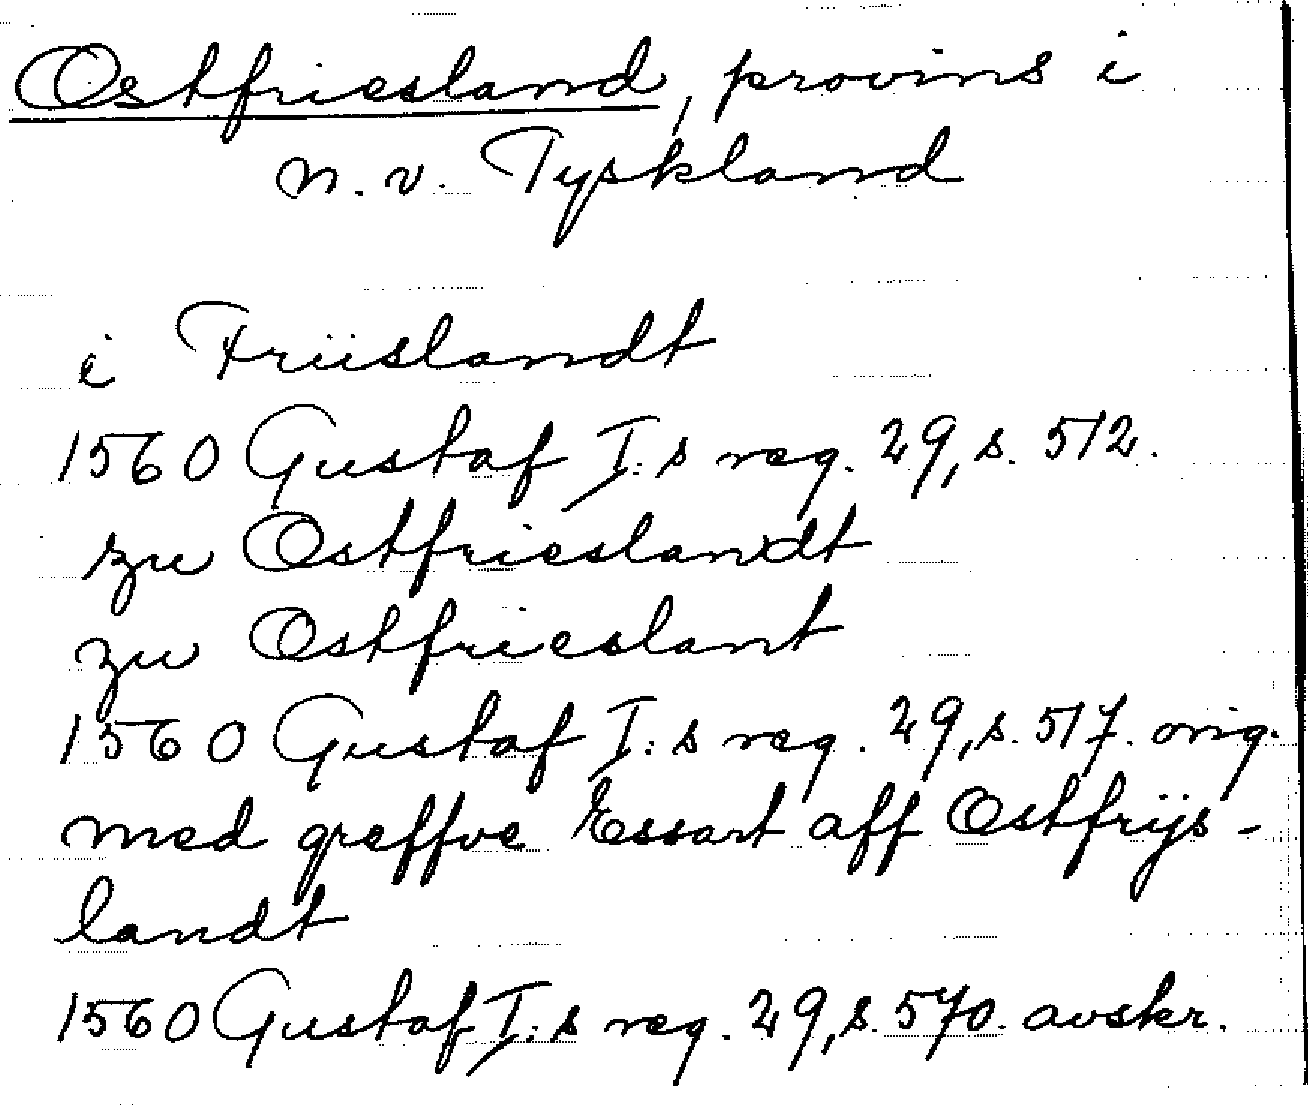 Ostfriesland, provins i
n.v. Tyskland
i Friislandt
1560 Gustaf I:s reg. 29, s. 512.
zu Ostfrieslandt
zu Ostfrieslant
1560 Gustaf I:s reg. 29, s. 517. orig.
med greffve Essart aff Ostfrijs-
landt
1560 Gustaf I:s reg. 29, s. 570. avskr.